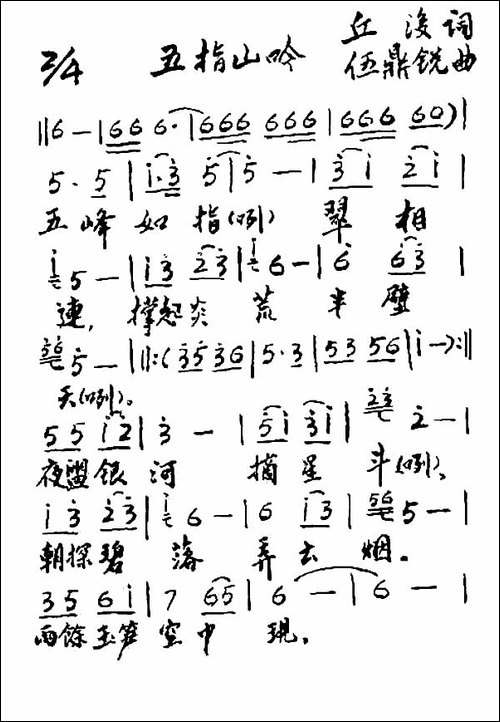 2/4 五指山吟 丘浚词
伍鼎铣曲
‖6 — | 66 6· | 666 666 | 666 60) |
5· 5 | i·3 5 | 5 — | 3 i 2 i |
五峰如指(咧) 翠相
i 5 — | i 3 2 3 | i 6 — | 6 6 3 |
連, 撑起炎荒半壁
56 5 — | ‖:(35 36 | 5· 3 | 53 56 | i —):‖
天(咧)。
55 i2 | 3 — | 5i 3i | 23 2 — |
夜盥银河 摘星斗(咧),
i 3 2 3 | i 6 — | 6 i 3 | 56 5 — |
朝探碧落弄云烟。
35 6i | 7 65 | 6 — | 6 — |
雨餘玉笋空中現,